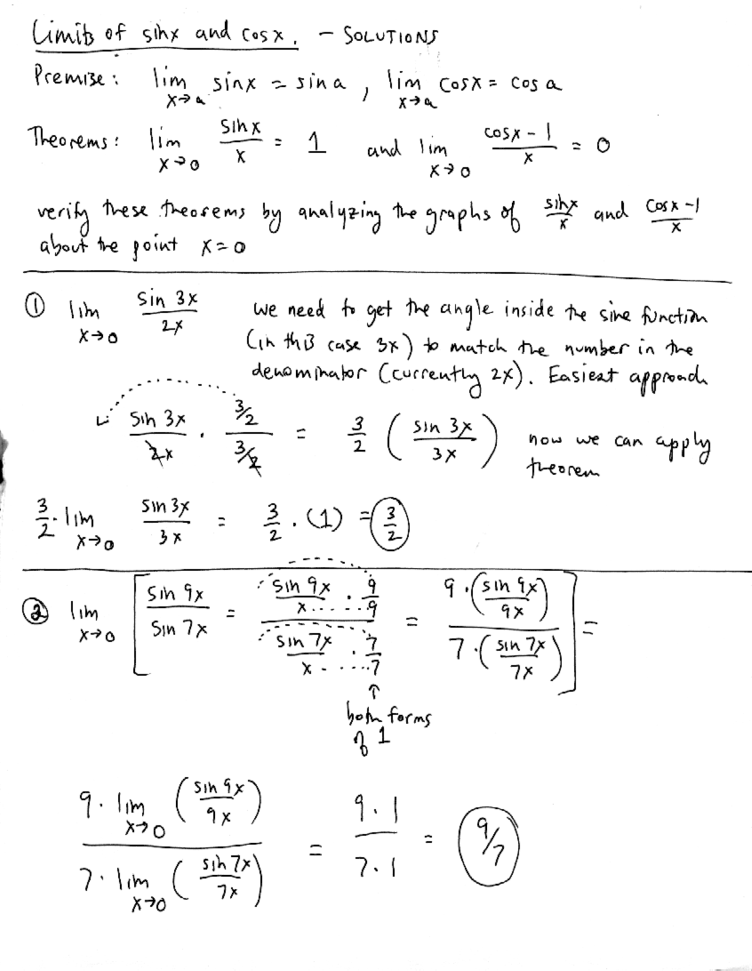 Limits of sinx and cosx. – SOLUTIONS
Premise: lim x→a sinx = sin a, lim x→a cosx = cos a
Theorems: lim x→0 sinx/x = 1 and lim x→0 (cosx - 1)/x = 0
verify these theorems by analyzing the graphs of sinx/x and (cosx - 1)/x
about the point x=0
① lim x→0 sin 3x/2x we need to get the angle inside the sine function
(in this case 3x) to match the number in the
denominator (currently 2x). Easiest approach
sin 3x/2x · (3/2)/(3/2) = 3/2 (sin 3x/3x) now we can apply
theorem
3/2 · lim x→0 sin 3x/3x = 3/2 · (1) = 3/2
② lim x→0 [sin 9x/sin 7x = (sin 9x/x · 9/9)/(sin 7x/x · 7/7) = 9·(sin 9x/9x)/7·(sin 7x/7x)] =
↑
both forms
of 1
9 · lim x→0 (sin 9x/9x)/7 · lim x→0 (sin 7x/7x) = 9·1/7·1 = 9/7